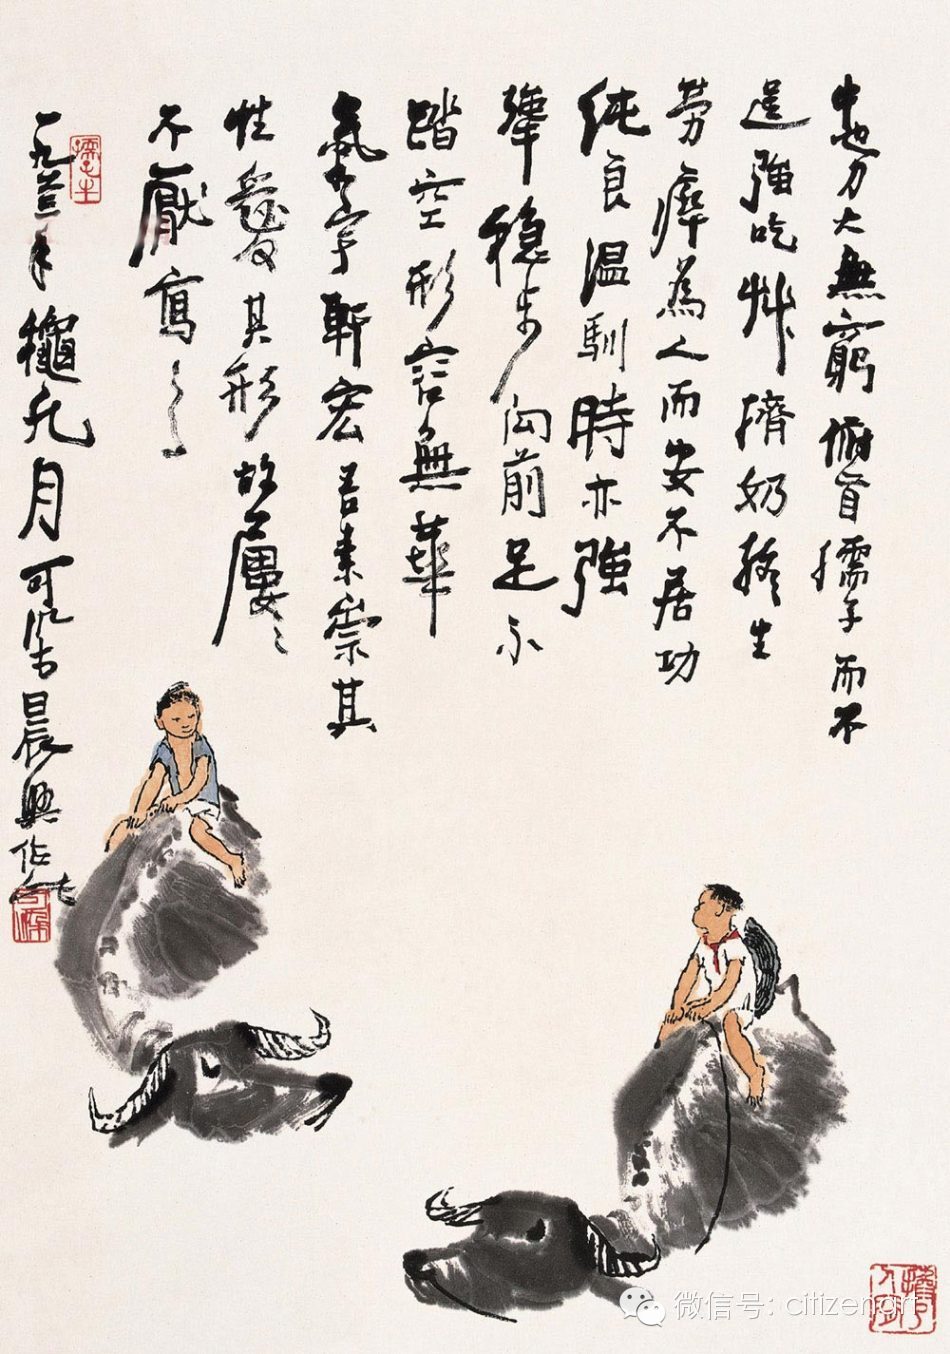 牛也力大無窮俯首孺子而不
逞強吃艸擠奶終生
劳瘁為人而安不居功
纯良温馴時亦強
犟穩步向前足不
踏空形容無華
氣宇軒宏吾素崇其
性愛其形故屢〻
不厭寫之
一九六三年穐九月可染晨興作此
孺子牛
可染
微信号: citizenart